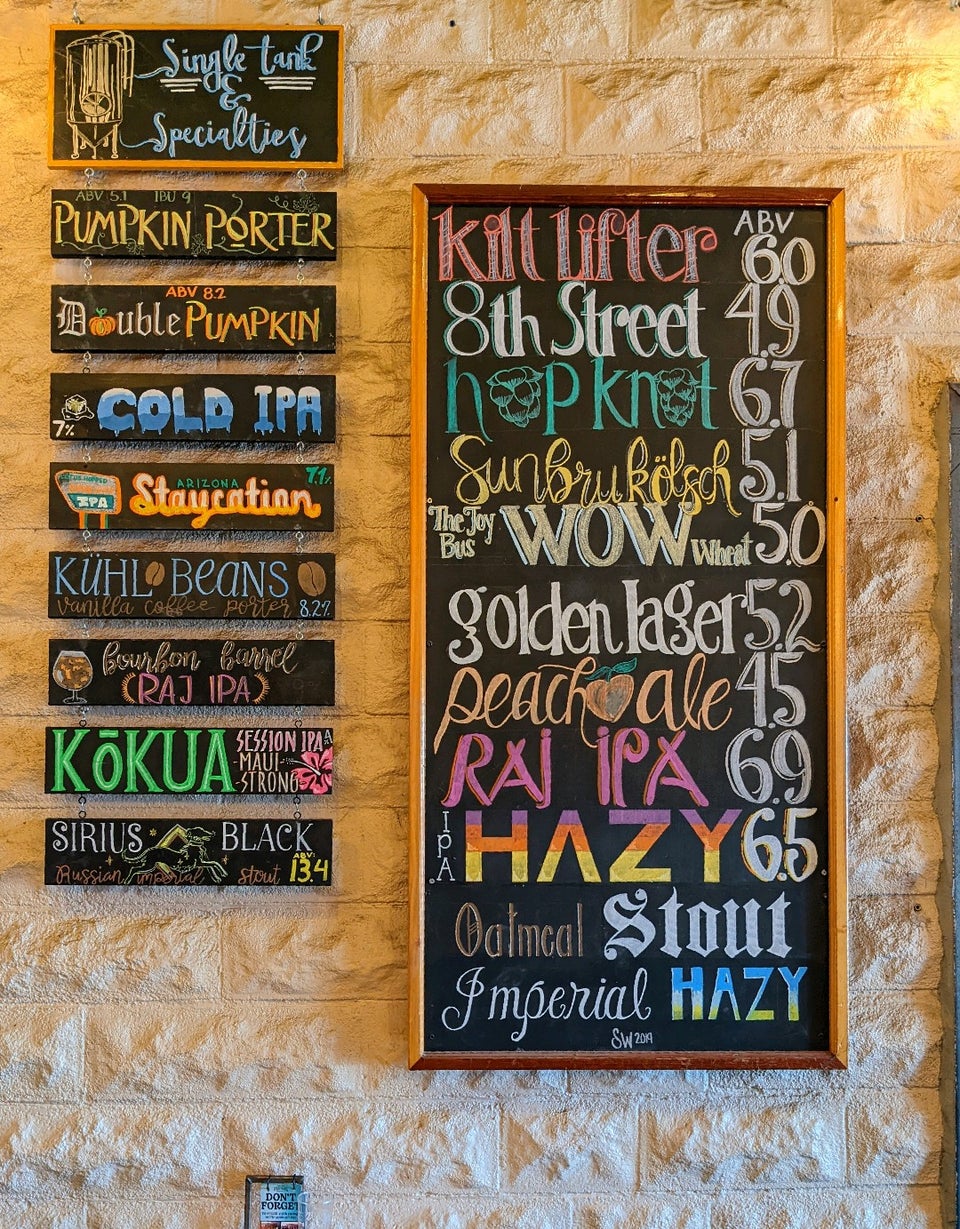 Single tank
&
Specialties
ABV 5.1 IBU 9
PUMPKIN PORTER
ABV 8.2
Double PUMPKIN
7% COLD IPA
IPA
ARIZONA
7.1%
Staycation
KÜHL BEANS
vanilla coffee porter 8.2%
bourbon barrel
RAJ IPA
KōKUA
SESSION IPA
-MAUI-
STRONG
SIRIUS BLACK
ABV:
Russian imperial stout 13.4
ABV
Kilt Lifter 6.0
8th Street 4.9
hop knot 6.7
Sunbru kölsch 5.1
The Joy
Bus
WOW Wheat 5.0
golden lager 5.2
peach ale 4.5
RAJ IPA 6.9
IPA HAZY 6.5
Oatmeal Stout
Imperial HAZY
SW 2019
DON'T
FORGET